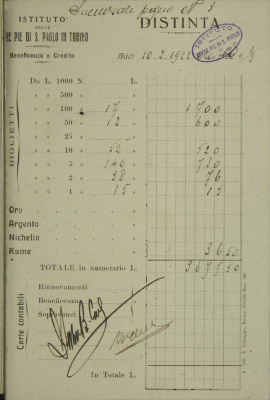 Succursale pegno N° 3
ISTITUTO
DELLE
OPERE PIE DI S. PAOLO IN TORINO
Beneficenza e Credito
DISTINTA
Addì 10.2.1922
BIGLIETTI
Da L. 1000 N. L.
» 500 » »
» 100 » 17 » 1700
» 50 » 12 » 600
» 25 » »
» 10 » 52 » 520
» 5 » 146 » 730
» 2 » 38 » 76
» 1 » 15 » 15
Oro
Argento
Nichelio
Rame 36 50
TOTALE in numerario L. 3677 50
Carte contabili
Rinnovamenti
Beneficenza
Sopravanzi
In Totale L.